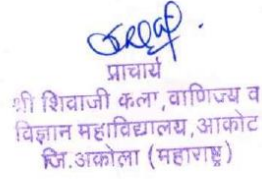 प्राचार्य
श्री शिवाजी कला, वाणिज्य व
विज्ञान महाविद्यालय, आकोट
जि. अकोला (महाराष्ट्र)